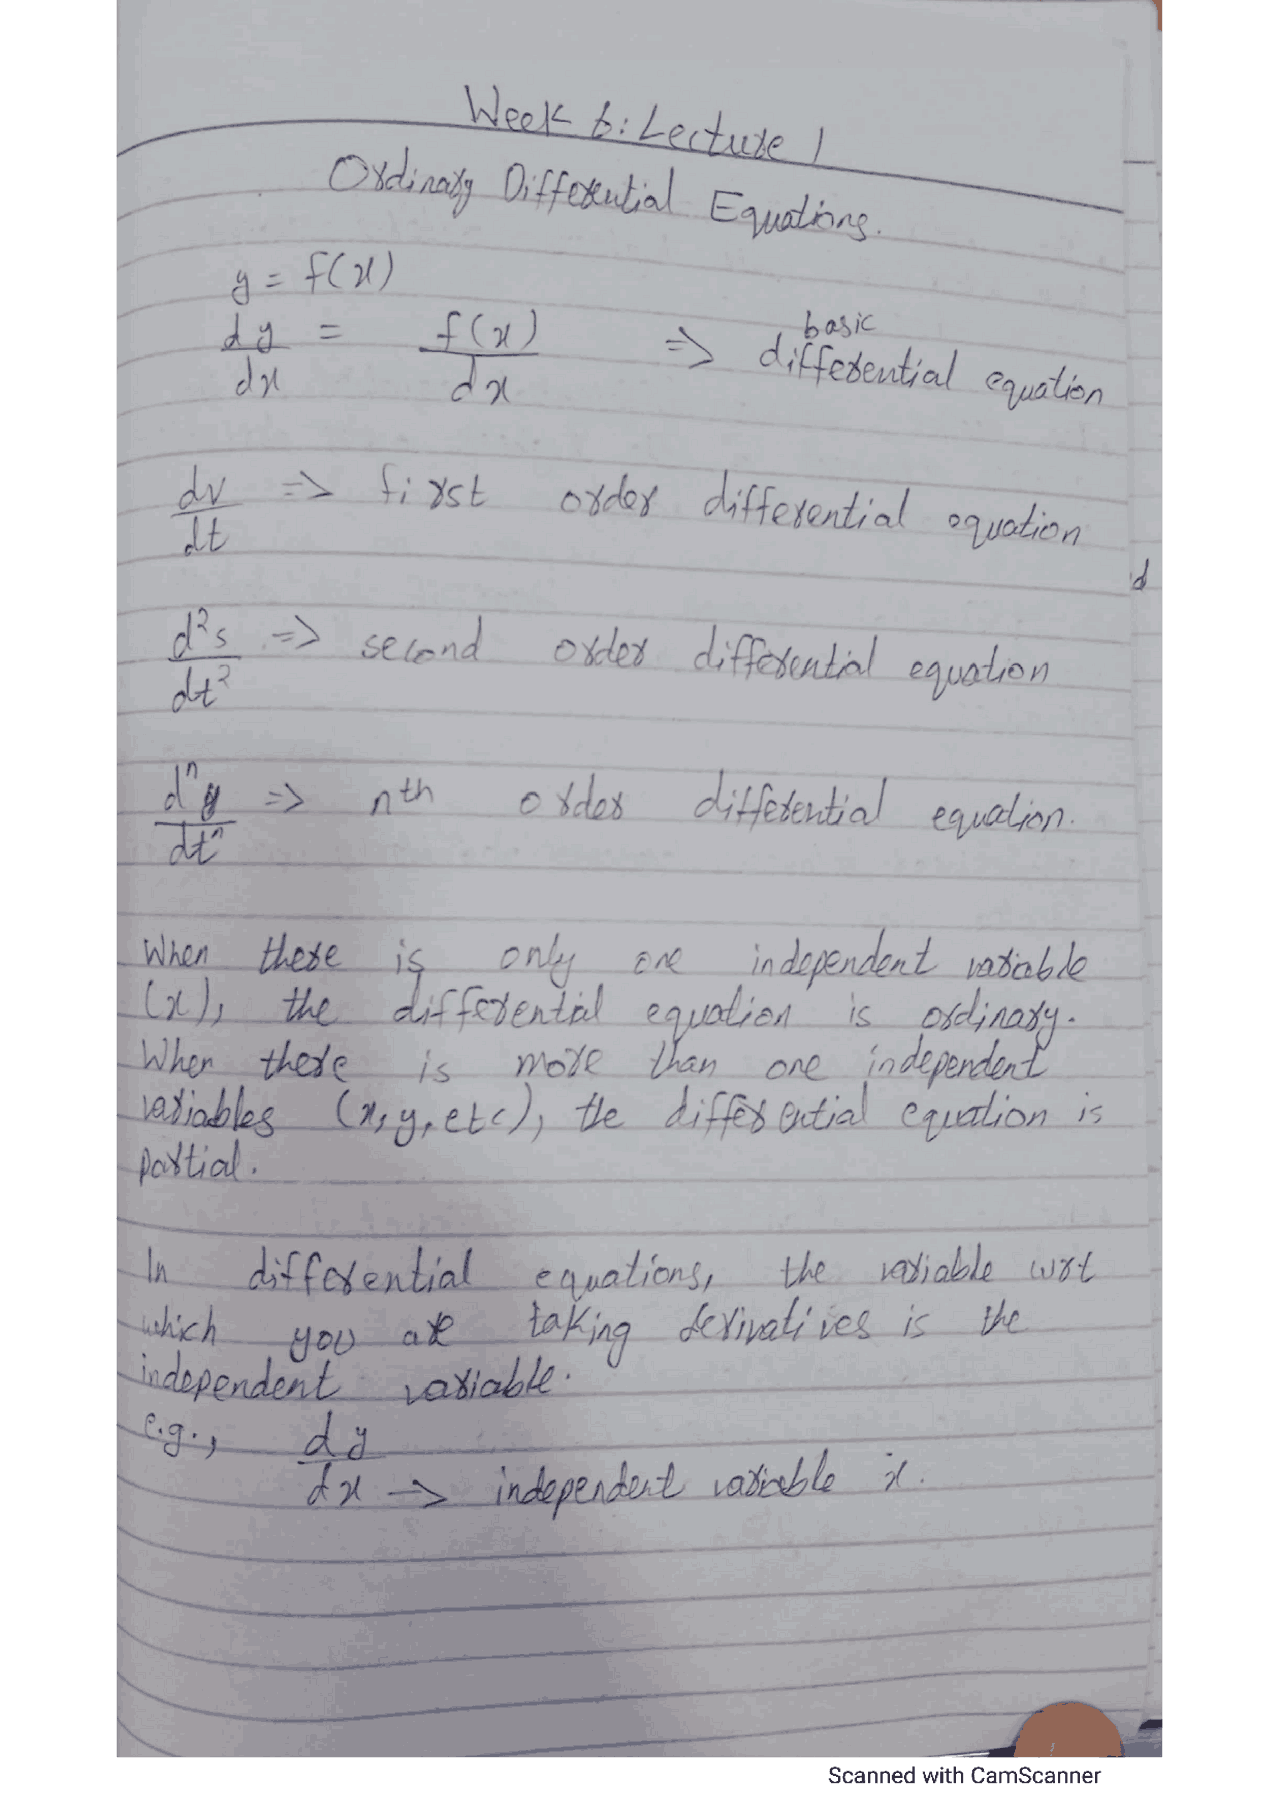 Week 6: Lecture 1
Ordinary Differential Equations.
y = f(x)
dy/dx = f(x)/dx => basic differential equation
dv/dt => first order differential equation
d
d²s/dt² => second order differential equation
dⁿy/dtⁿ => nth order differential equation.
When there is only one independent variable
(x), the differential equation is ordinary.
When there is more than one independent
variables (x, y, etc), the differential equation is
partial.
In differential equations, the variable wrt
which you are taking derivatives is the
independent variable.
e.g., dy/dx -> independent variable x.
Scanned with CamScanner